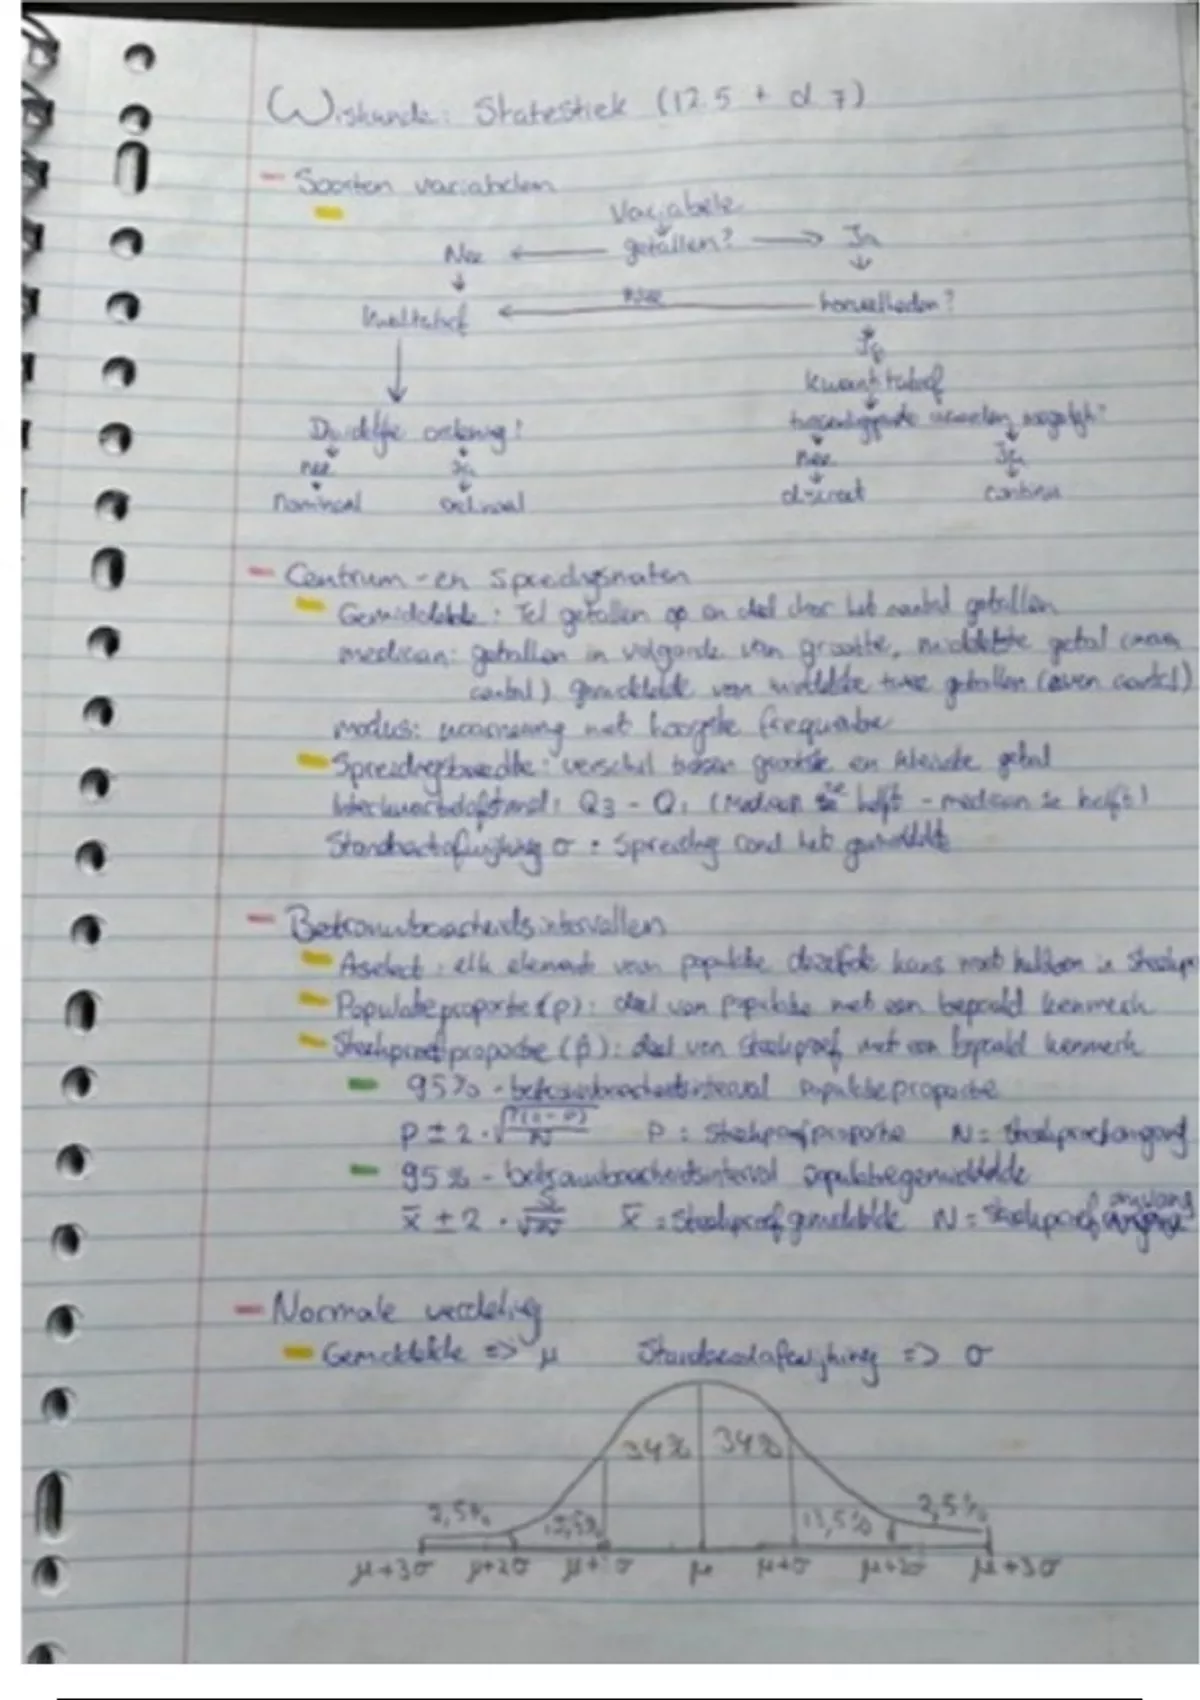 Wiskunde: Statestiek (12.5 + d 7)
- Soorten variabelen
Variabele
Nee ← getallen? → Ja
kwalitatief ← Nee hoeveelheden?
Ja
kwantitatief
Duidelijke ordening? tussenliggende waarden mogelijk?
nee ja nee Ja
nominaal ordinaal discreet continu
- Centrum- en spreidingsmaten
Gemiddelde: Tel getallen op en deel door het aantal getallen
mediaan: getallen in volgorde van grootte, middelste getal (oneven
aantal) gemiddelde van middelste twee getallen (even aantal)
modus: waarneming met hoogste frequentie
Spreidingsbreedte: verschil tussen grootste en kleinste getal
Interkwartielafstand: Q3 - Q1 (mediaan 2e helft - mediaan 1e helft)
Standaardafwijking σ = spreiding rond het gemiddelde
- Betrouwbaarheidsintervallen
Aselect: elk element van populatie dezelfde kans moet hebben in steekp
Populatieproportie (p): deel van populatie met een bepaald kenmerk
Steekproefproportie (p̂): deel van steekproef met een bepaald kenmerk
95% - betrouwbaarheidsinterval populatieproportie
P ± 2 · √(P(1-P)/N) P = steekproefproportie N = steekproefomvang
95% - betrouwbaarheidsinterval populatiegemiddelde
x̄ ± 2 · S/√N x̄ = steekproefgemiddelde N = steekproef omvang
- Normale verdeling
Gemiddelde => μ Standaardafwijking => σ
34% 34%
2,5% 13,5% 13,5% 2,5%
μ+3σ μ+2σ μ+σ μ μ+σ μ+2σ μ+3σ